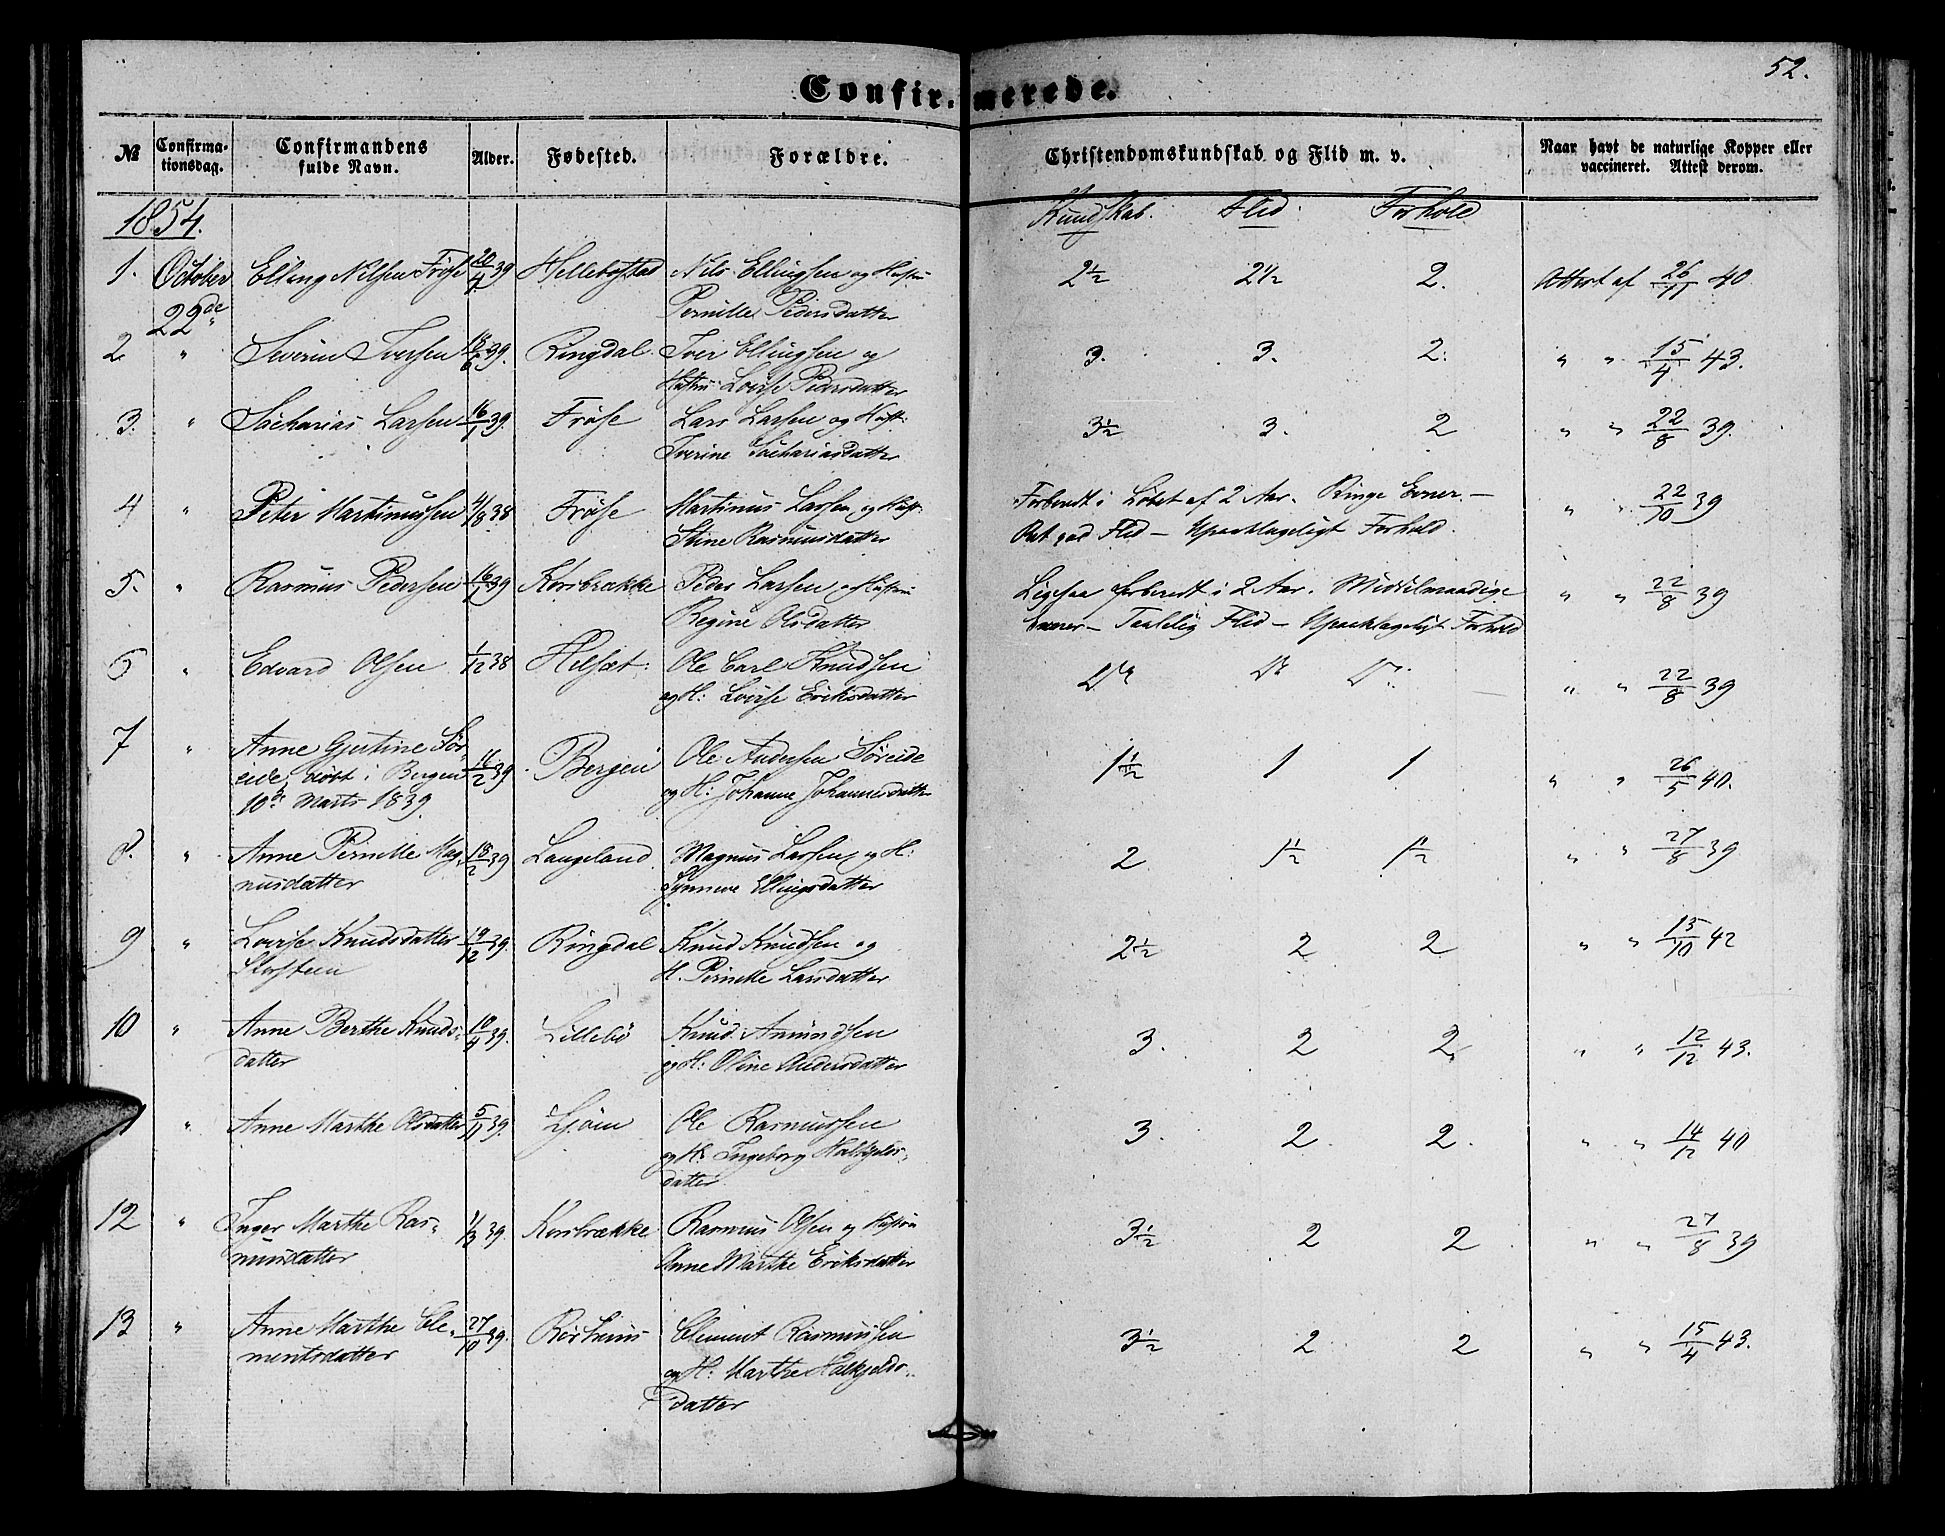 52.
Confirmerede.
№ Confirma-tionsdag. Confirmandens fulde Navn. Alder. Fødested. Forældre. Christendomskundskab og Flid m. v. Naar havt de naturlige Kopper eller vaccineret. Attest derom.
1854. Kundskab. Flid. Forhold
1. October 22de Elling Nilsen Fröse 20/4 39 Hellebostad Nils Ellingsen og Hustru 2½ 2½ 2. Attest af 26/11 40
Pernille Pedersdatter
2 " Severin Iversen 18/6 39. Ringdal. Iver Ellingsen og 3. 3. 2. " " 15/4 43.
Hustru Lovise Pedersdatter
3. " Sacharias Larsen 16/1 39. Fröse Lars Larsen og Hustr: 3½ 3. 2 " " 22/8 39.
Iverine Sachariasdatter
4 " Peter Martinussen 4/8 38 Fröse Martinus Larsen og Hustr: Forberedt i Löbet af 2 Aar. Ringe Evner. — " " 22/10 39
Stine Rasmusdatter Ret god Flid — Upaaklageligt Forhold.
5. " Rasmus Pedersen 16/1 39 Korsbrække Peder Larsen og Hustru Ligesaa forberedt i 2 Aar. Middelmaadige " " 22/8 39
Regine Olsdatter Evner — Taalelig Flid — Upaaklageligt Forhold
6 " Edvard Olsen 1/12 38 Helsæt. Ole Carl Knudsen Do Do Do " " 22/8 39
og H: Lovise Eriksdatter
7 " Anne Gjertine Sör- 16/2 39 Bergen Ole Andersen Söreide 1½ 1 1 " " 26/5 40.
eide, döbt i Bergen og H: Johanne Johannesdatter
10de Marts 1839.
8. " Anne Pernille Mag- 18/2 39 Langeland Magnus Larsen og H: 2 1½ 1½ " " 27/8 39
nusdatter Synneve Ellingsdatter
9 " Lovise Knudsdatter 19/12 39. Ringdal Knud Knudsen og 2½ 2 2 " " 15/10 42
Storsteen H. Pernille Larsdatter
10 " Anne Berthe Knuds- 10/4 39. Lillebö Knud Amundsen 3. 2 2. " " 12/12 43.
datter og H: Oline Andersdatter
" Anne Marthe Olsdatter 5/11 39. Ljöen Ole Rasmussen 3. 2. 2. " " 14/12 40
og H: Ingeborg Halkjels-
datter
12 " Inger Marthe Ras- 1/3 39. Korsbrække Rasmus Olsen og Hustru 3½ 2 2 " " 27/8 39
musdatter Anne Marthe Eriksdatter
13 " Anne Marthe Cle- 27/10 39. Rörhuus Clement Rasmussen 3½ 2 2 " " 15/4 43.
mentsdatter og H: Marthe Halkjelds-
datter